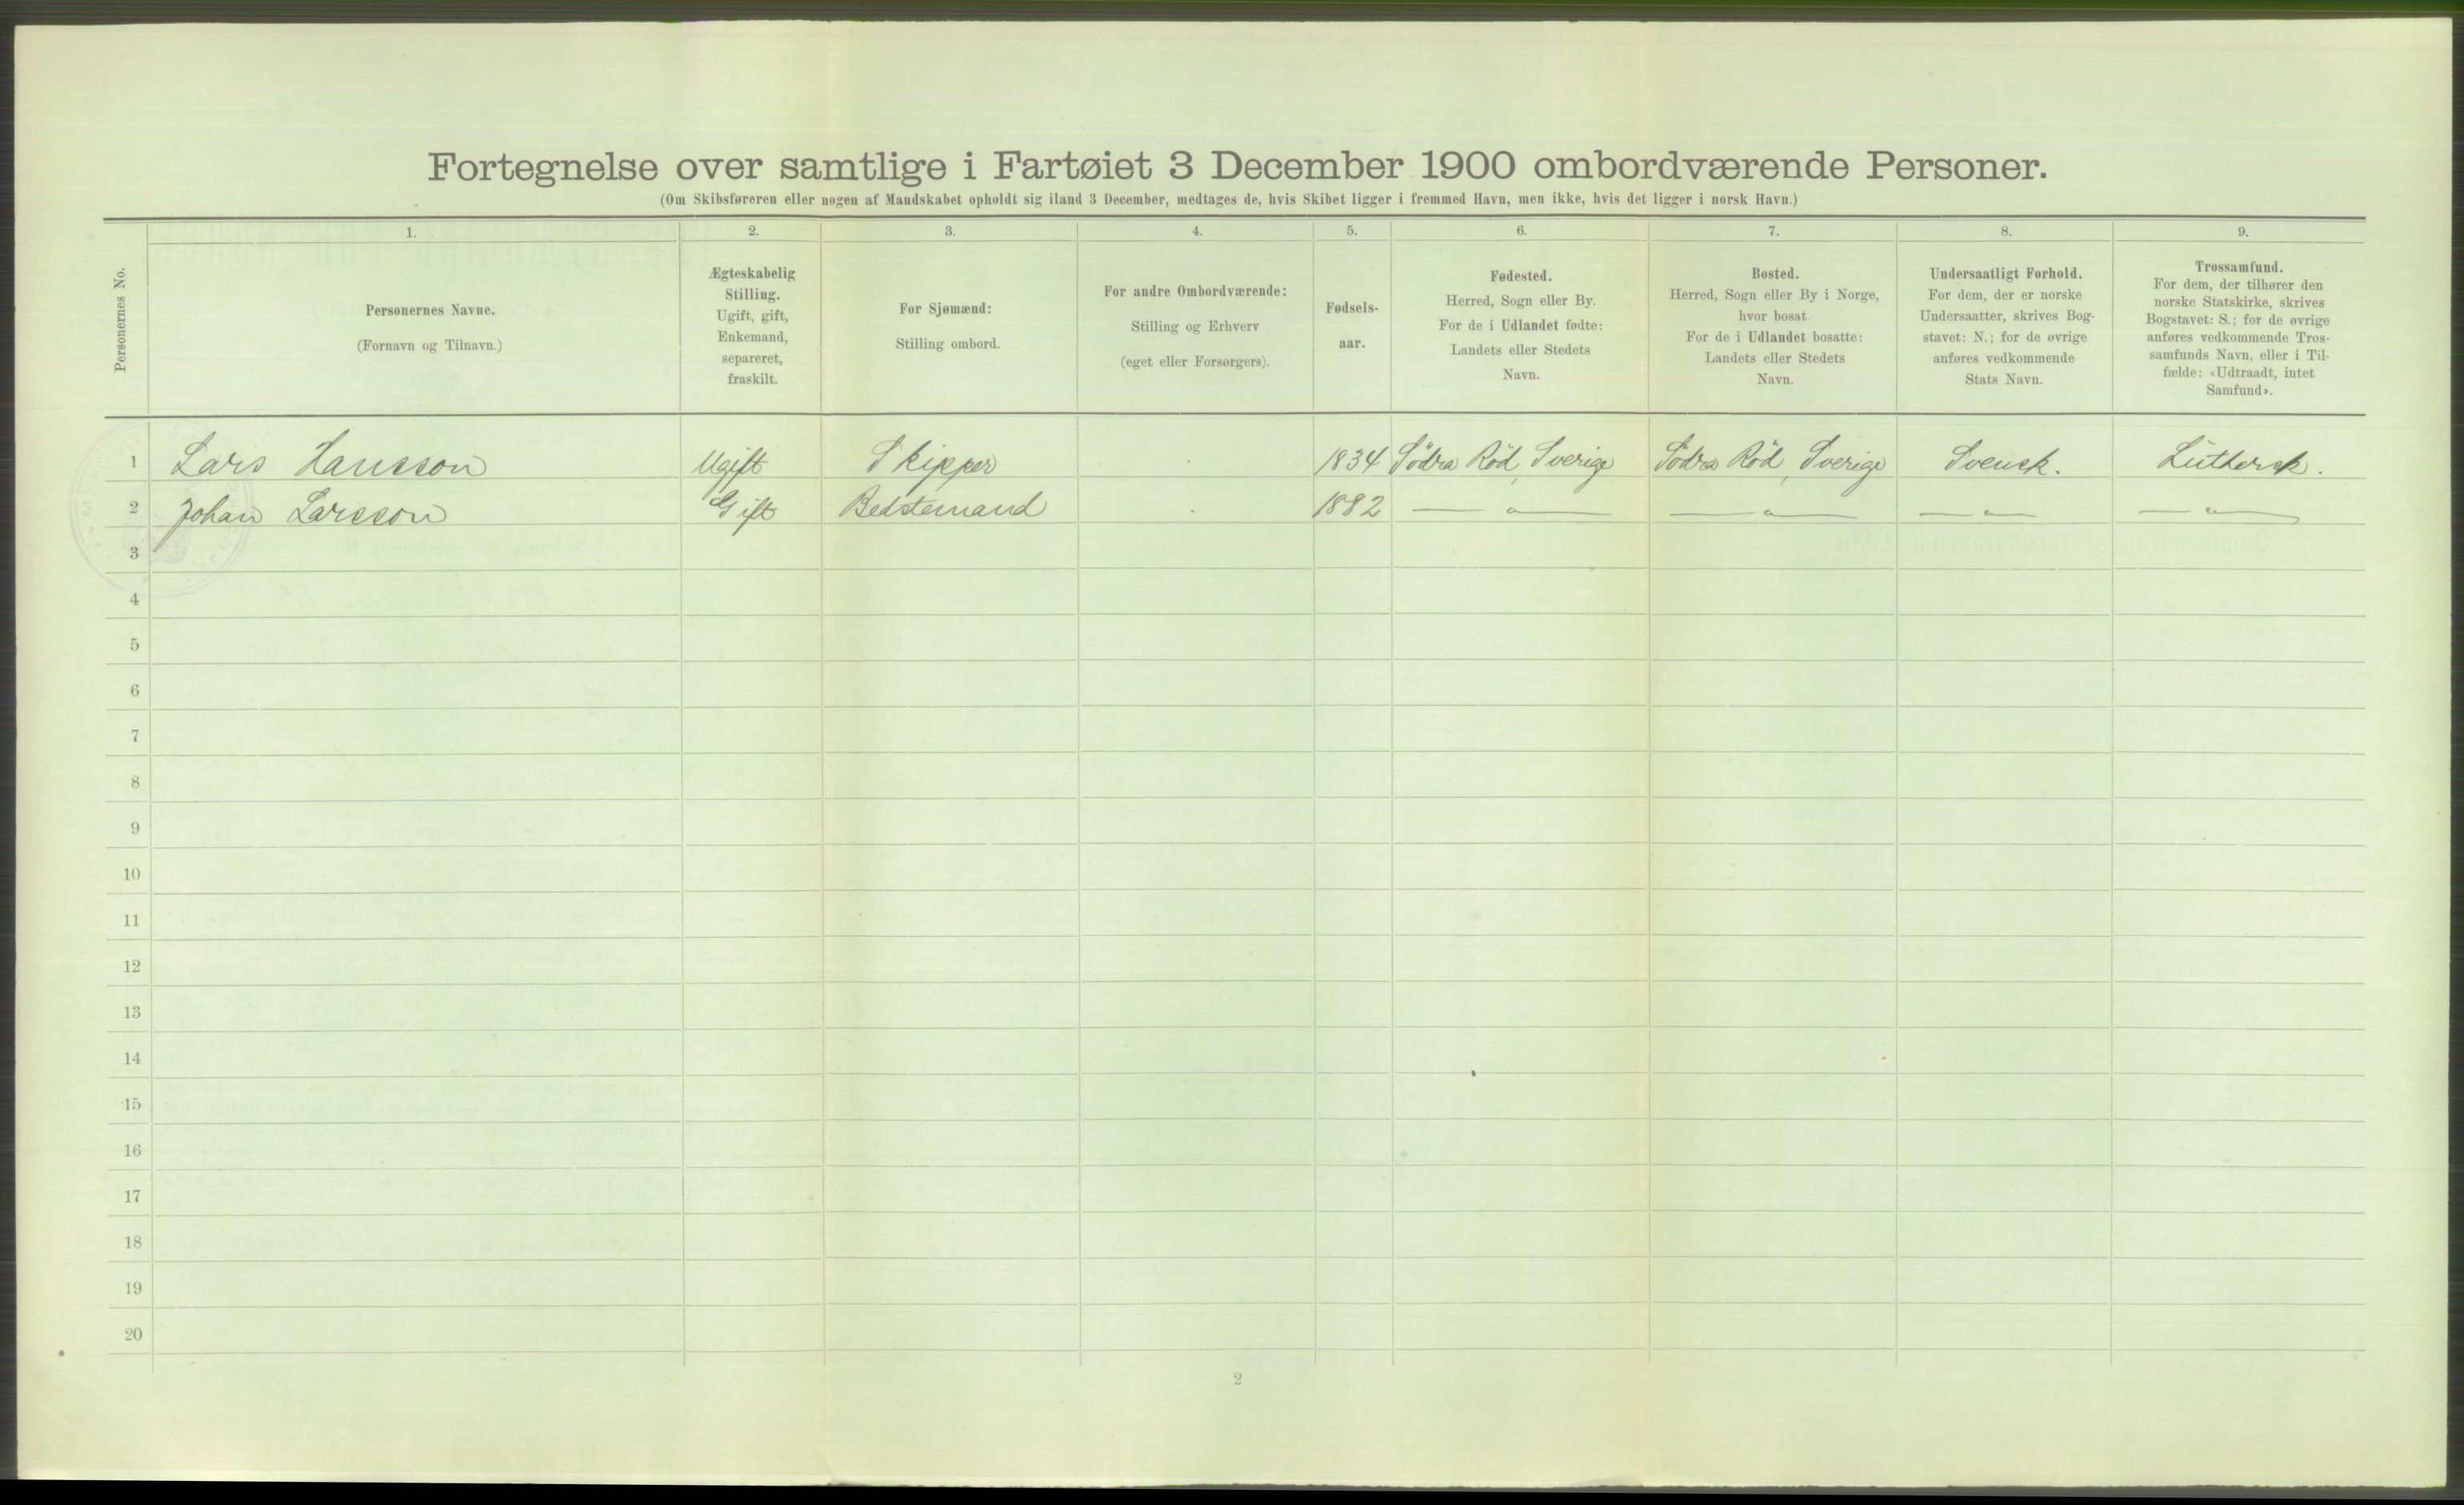 Fortegnelse over samtlige i Fartøiet 3 December 1900 ombordværende Personer.
(Om Skibsføreren eller nogen af Mandskabet opholdt sig iland 3 December, medtages de, hvis Skibet ligger i fremmed Havn, men ikke, hvis det ligger i norsk Havn.)
Personernes No.
1.
Personernes Navne.
(Fornavn og Tilnavn.)
2.
Ægteskabelig
Stilling.
Ugift, gift,
Enkemand,
separeret,
fraskilt.
3.
For Sjømænd:
Stilling ombord.
4.
For andre Ombordværende:
Stilling og Erhverv
(eget eller Forsørgers).
5.
Fødsels-
aar.
6.
Fødested.
Herred, Sogn eller By.
For de i Udlandet fødte:
Landets eller Stedets
Navn.
7.
Bosted.
Herred, Sogn eller By i Norge,
hvor bosat.
For de i Udlandet bosatte:
Landets eller Stedets
Navn.
8.
Undersaatligt Forhold.
For dem, der er norske
Undersaatter, skrives Bog-
stavet: N.; for de øvrige
anføres vedkommende
Stats Navn.
9.
Trossamfund.
For dem, der tilhører den
norske Statskirke, skrives
Bogstavet: S.; for de øvrige
anføres vedkommende Tros-
samfunds Navn, eller i Til-
fælde: «Udtraadt, intet
Samfund».
1 Lars Hansson Ugift Skipper 1834 Södra Röd, Sverige Södra Röd, Sverige Svensk. Luthersk.
2 Johan Larsson Gift Bedstemand 1882 — " — — " — — " — — " —
3
4
5
6
7
8
9
10
11
12
13
14
15
16
17
18
19
20
2